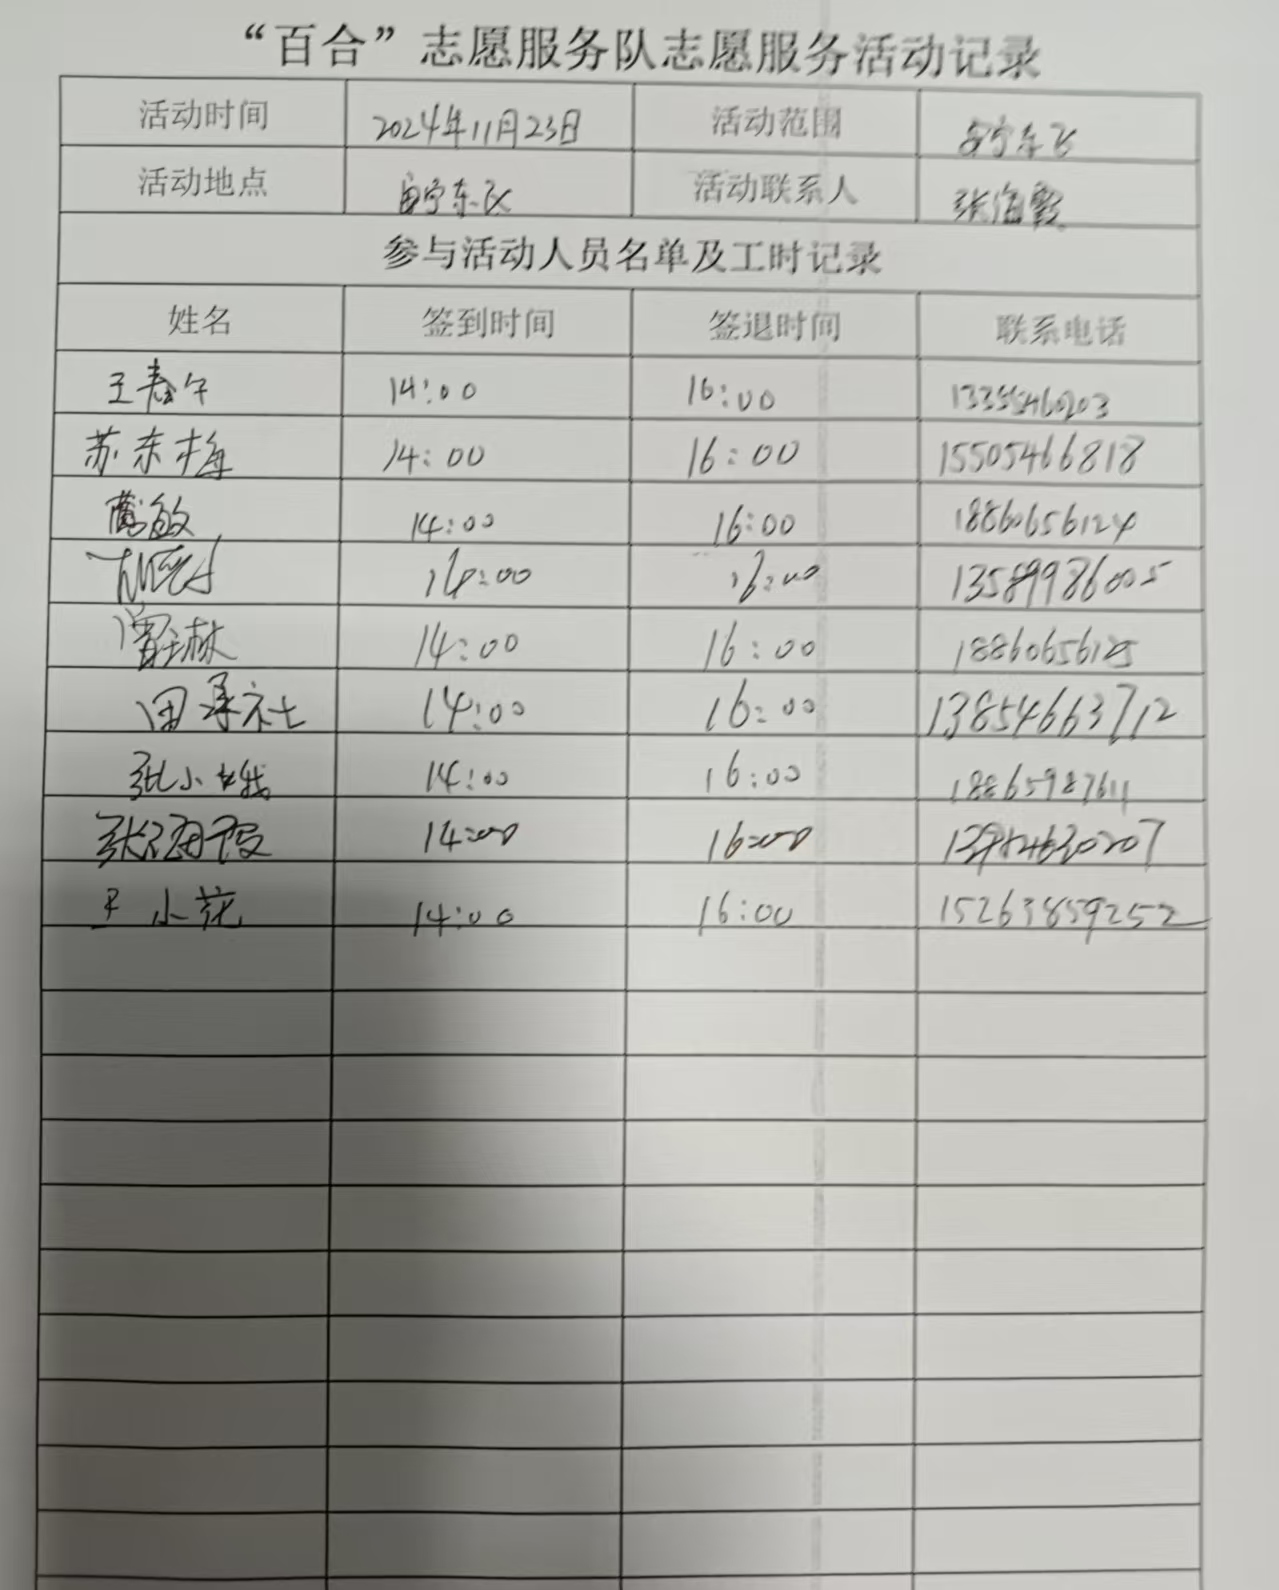 “百合”志愿服务队志愿服务活动记录
活动时间 2024年11月23日 活动范围
活动地点 东区 活动联系人 张海霞
参与活动人员名单及工时记录
姓名 签到时间 签退时间 联系电话
王春午 14:00 16:00 13355460203
苏东梅 14:00 16:00 15505466818
敏 14:00 16:00 18860656124
14:00 16:00 13589986005
14:00 16:00 18860656125
田承社 14:00 16:00 13854663712
张小娥 14:00 16:00 18865987611
张海霞 14:00 16:00
王小花 14:00 16:00 15263859252